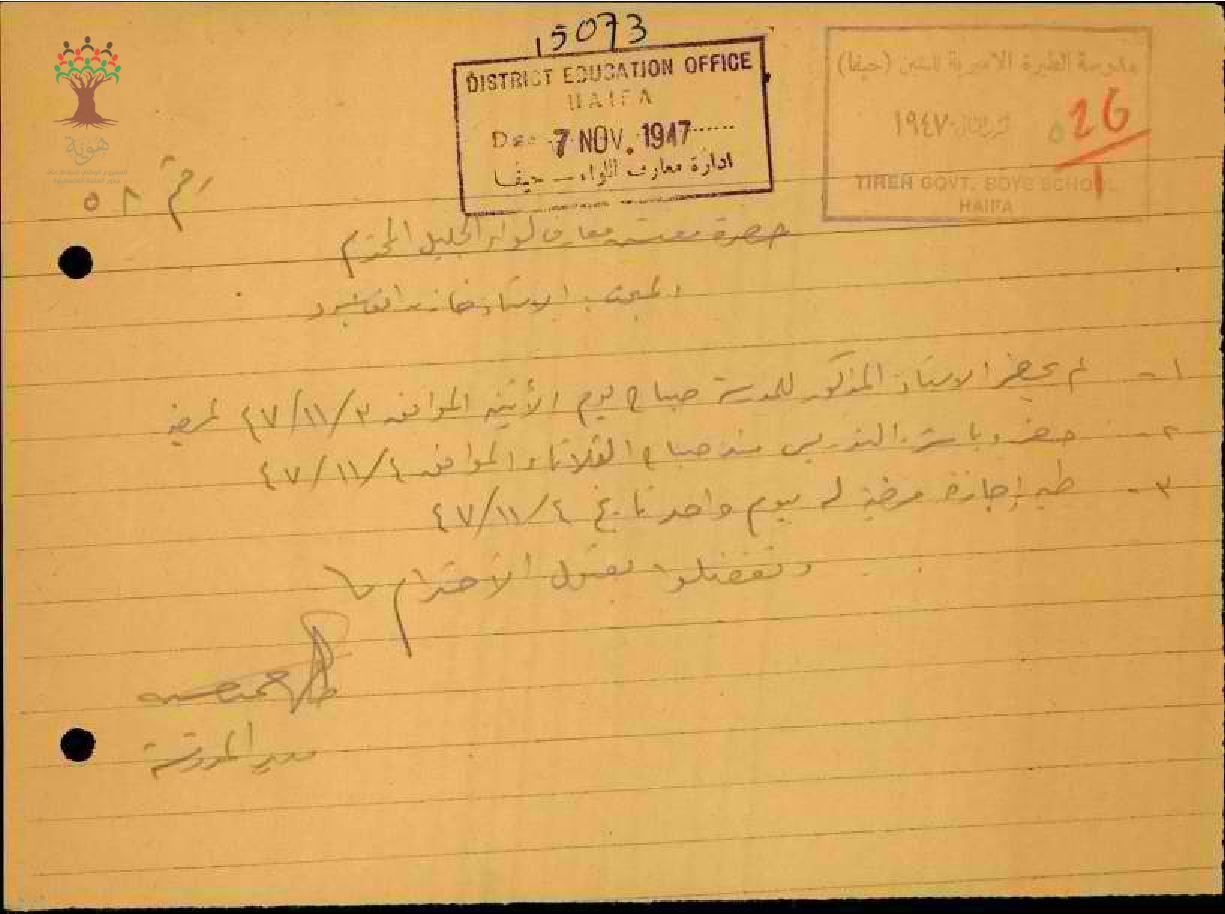 15073
DISTRICT EDUCATION OFFICE
HAIFA
Dec 7 NOV. 1947
ادارة معارف اللواء - حيفا
مدرسة الطيرة الاميرية للبنين (حيفا)
١٩٤٧
26
1
TIREH GOVT. BOYS SCHOOL
HAIFA
هوية
رقم ٥٨
حضرة مفتش معارف لواء الجليل المحترم
الاستاذ
١- لم يحضر الاستاذ المذكور للمدرسة صباح يوم الأثنين الموافق ٤٧/١١/٣ لمرضه
٢- حضر وباشر التدريس منذ صباح الثلاثاء الموافق ٤٧/١١/٤
٣- طيه إجازة مرضية له بيوم واحد تاريخ ٤٧/١١/٤
وتفضلوا بقبول الأحترام
مدير المدرسة